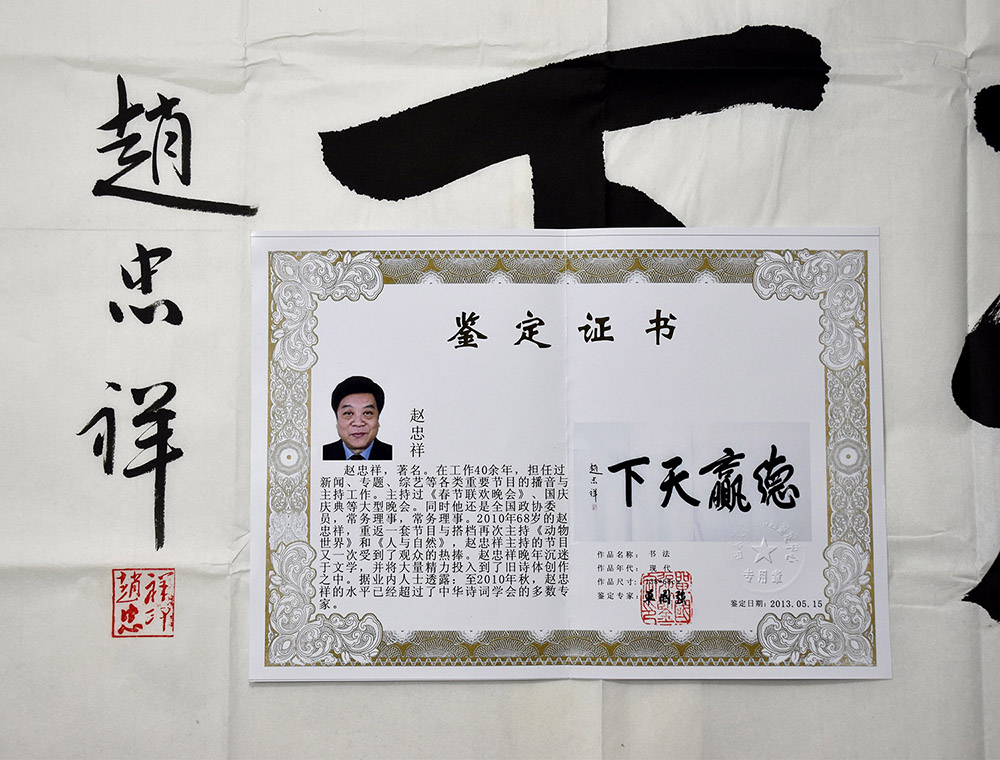 下
趙忠祥
趙忠祥印
鉴定证书
赵忠祥
赵忠祥，著名。在工作40余年，担任过
新闻、专题、综艺等各类重要节目的播音与
主持工作。主持过《春节联欢晚会》、国庆
庆典等大型晚会。同时他还是全国政协委
员，常务理事，常务理事。2010年68岁的赵
忠祥，重返一套节目与搭档再次主持《动物
世界》和《人与自然》，赵忠祥主持的节目
又一次受到了观众的热捧。赵忠祥晚年沉迷
于文学，并将大量精力投入到了旧诗体创作
之中。据业内人士透露：至2010年秋，赵忠
祥的水平已经超过了中华诗词学会的多数专
家。
德赢天下
趙忠祥
作品名称：书法
作品年代：现代
作品尺寸：
鉴定专家：单国强
专用章
鉴定日期：2013.05.15